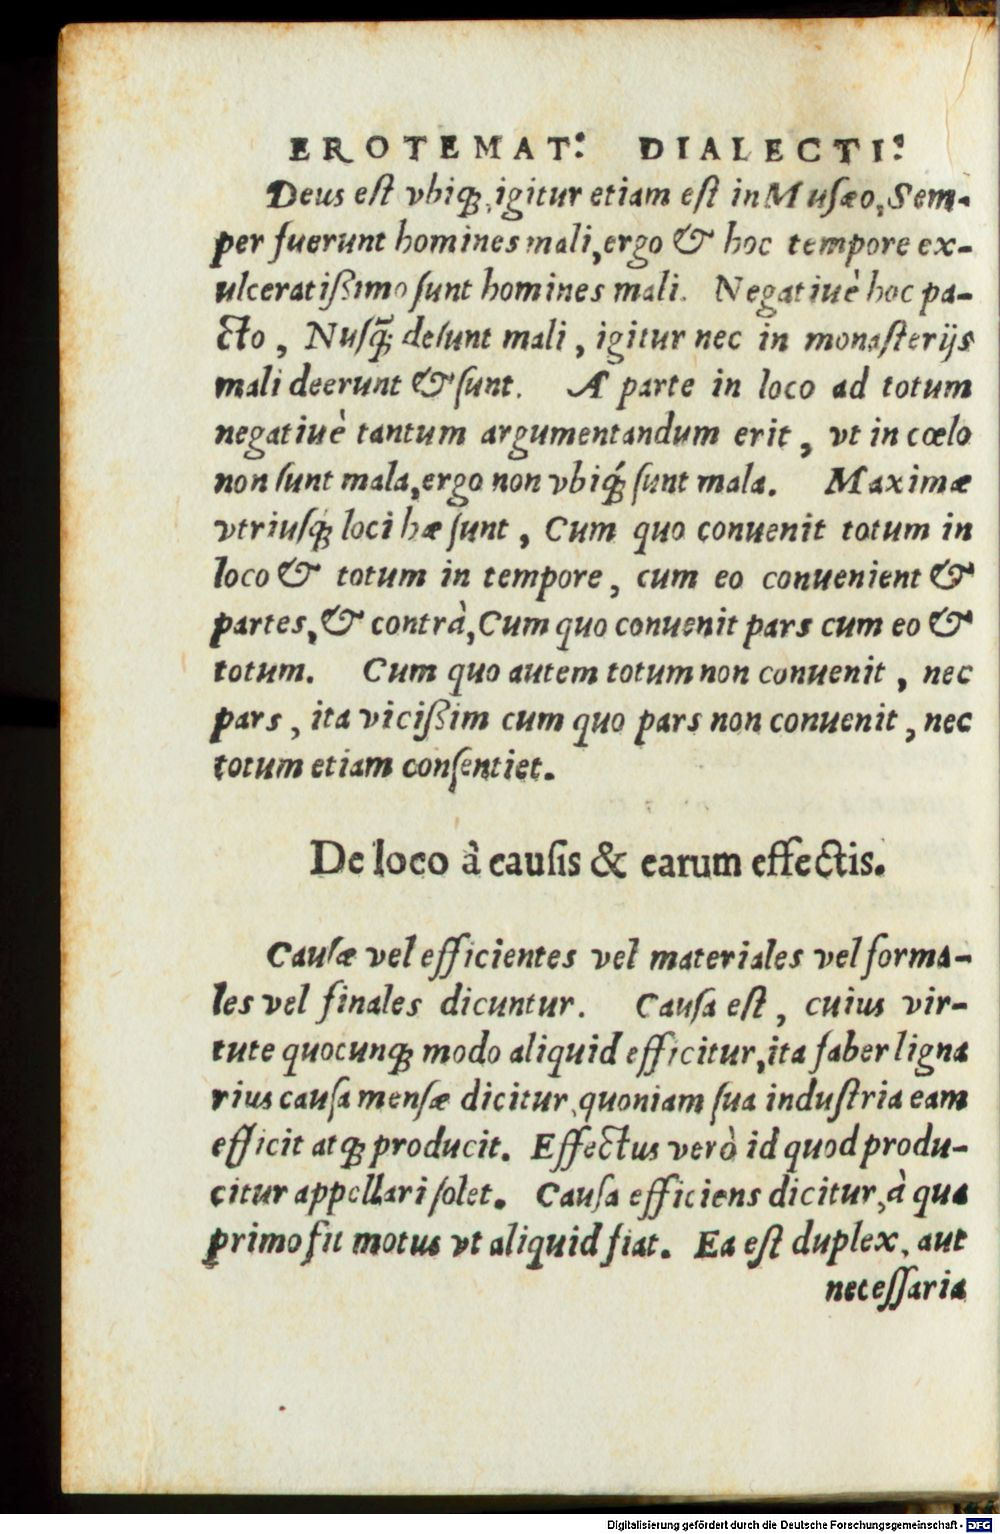 EROTEMAT: DIALECTI:
Deus eſt vbiq́;, igitur etiam eſt in Muſæo, Sem-
per fuerunt homines mali, ergo & hoc tempore ex-
ulceratiſsimo ſunt homines mali. Negatiuè hoc pa-
cto, Nuſq̃; deſunt mali, igitur nec in monaſterijs
mali deerunt & ſunt. A parte in loco ad totum
negatiuè tantum argumentandum erit, vt in cœlo
non ſunt mala, ergo non vbiq́; ſunt mala. Maximæ
vtriuſq; loci hæ ſunt, Cum quo conuenit totum in
loco & totum in tempore, cum eo conuenient &
partes, & contrà, Cum quo conuenit pars cum eo &
totum. Cum quo autem totum non conuenit, nec
pars, ita viciſsim cum quo pars non conuenit, nec
totum etiam conſentiet.
De loco à cauſis & earum effectis.
Cauſæ vel efficientes vel materiales vel forma-
les vel finales dicuntur. Cauſa eſt, cuius vir-
tute quocunq; modo aliquid efficitur, ita faber ligna
rius cauſa menſæ dicitur, quoniam ſua induſtria eam
efficit atq; producit. Effectus verò id quod produ-
citur appellari ſolet. Cauſa efficiens dicitur, à qua
primo fit motus vt aliquid fiat. Ea eſt duplex, aut
neceſſaria
Digitalisierung gefördert durch die Deutsche Forschungsgemeinschaft - DFG